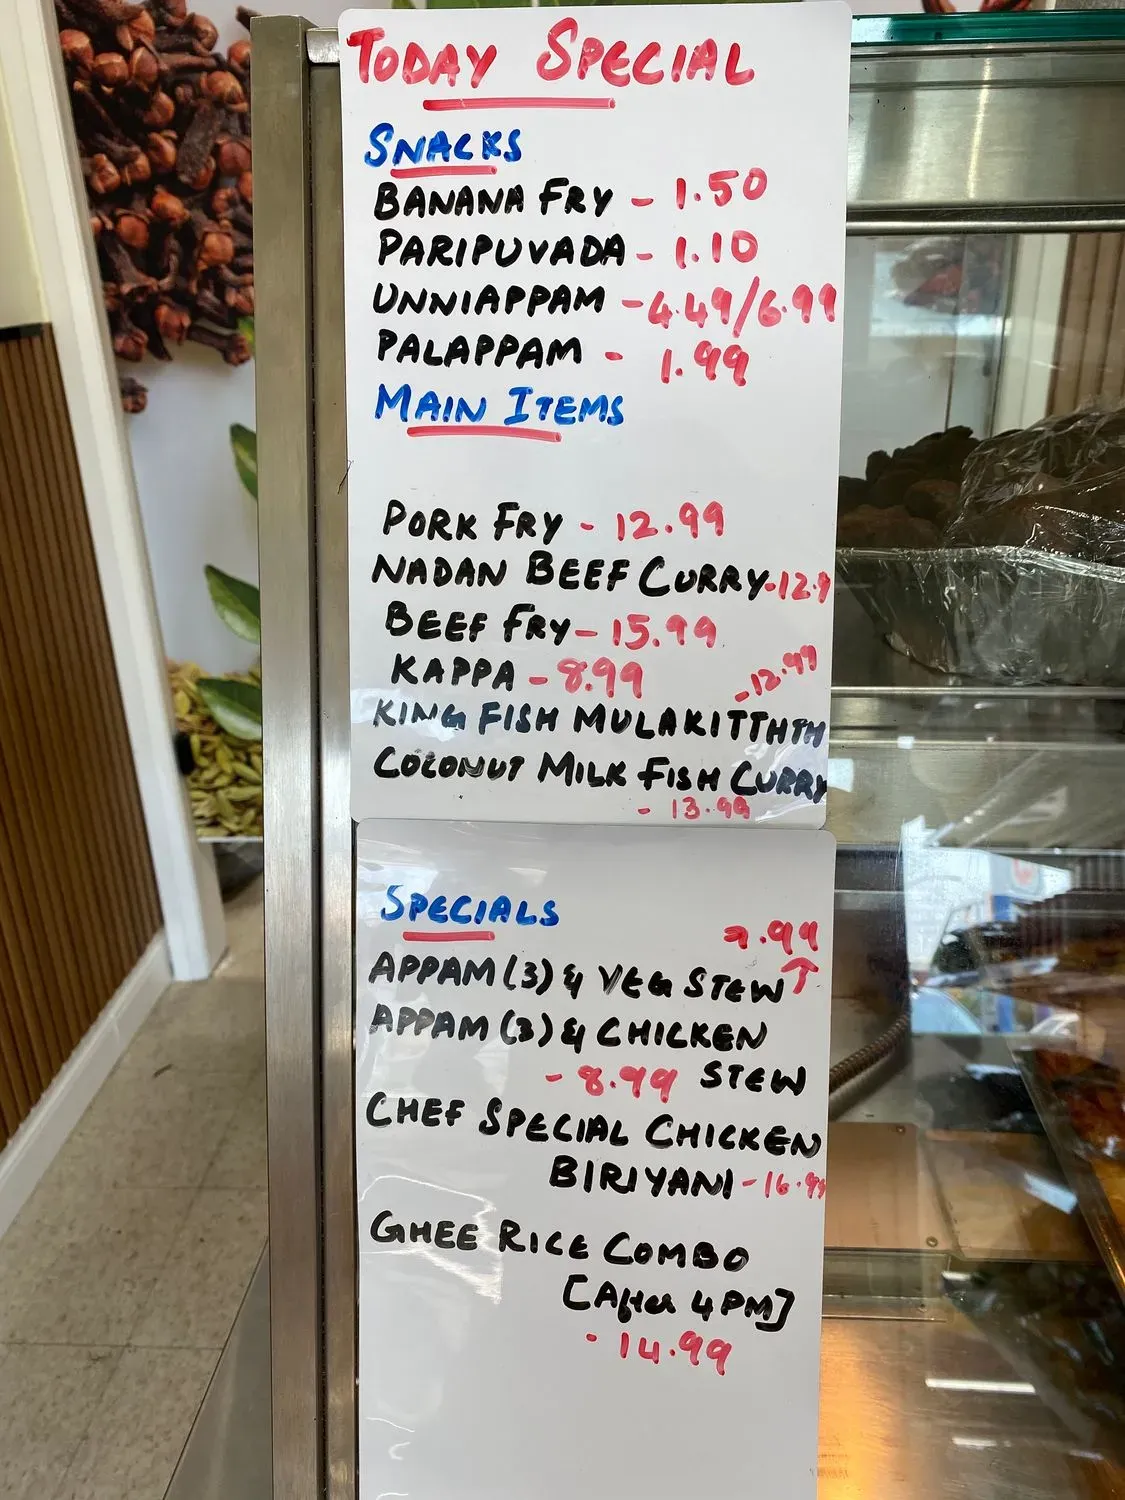 TODAY SPECIAL
SNACKS
BANANA FRY - 1.50
PARIPUVADA - 1.10
UNNIAPPAM - 4.49/6.99
PALAPPAM - 1.99
MAIN ITEMS
PORK FRY - 12.99
NADAN BEEF CURRY - 12.9
BEEF FRY - 15.99
KAPPA - 8.99
- 12.99
KING FISH MULAKITTHTH
COCONUT MILK FISH CURRY
- 13.99
SPECIALS
7.99
APPAM (3) & VEG STEW ↑
APPAM (3) & CHICKEN
- 8.99 STEW
CHEF SPECIAL CHICKEN
BIRIYANI - 16.99
GHEE RICE COMBO
[After 4 PM]
- 14.99